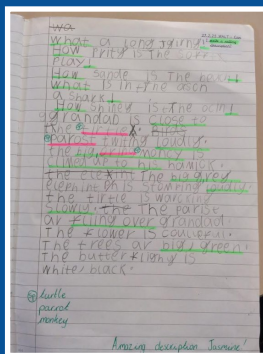 wa
What a long journy!
How Prity is the butter
Play!
How sande is the beach!
What is in the oach
a shark!
How shiney is the ocin!
grandad is close to
the turtle.
parost twiting loudly.
the money is
climaing in his hamick.
the elefant the big grey
elephint eh is stomring loudly.
the tirtle is walcking
slowly. the The parist
ar fliing over grandad.
The flower is coulerful.
The trees ar big/green.
The butter fliing is
White/black.
turtle
parrot
monkey
Amazing description Jasmine!